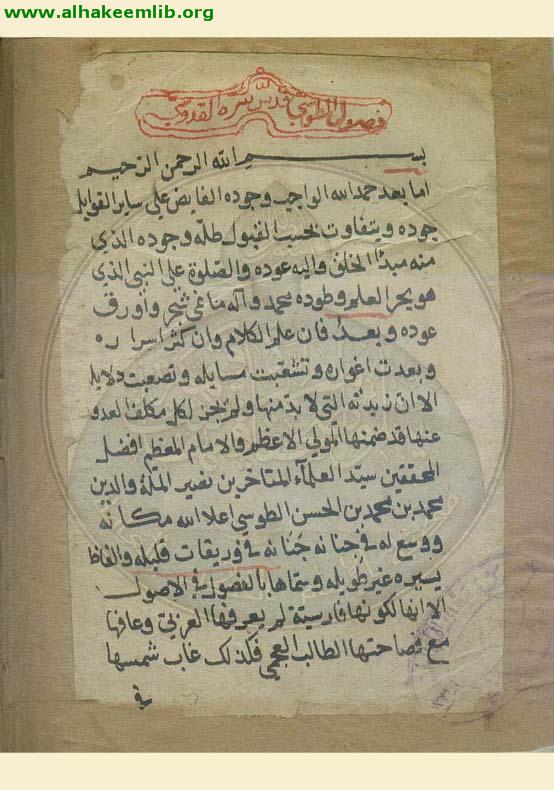 www.alhakeemlib.org
فصول الطوسي قدس سره القدوسي
بسم الله الرحمن الرحيم
اما بعد حمد الله الواجب وجوده الفايض على ساير القوابل
جوده ويتفاوت بحسب القبول طله وجوده الذي
منه مبدا الخلق واليه عوده والصلوة على النبي الذي
هو بحر العلم وطوده محمد وآله ما نمى شجر وأورق
عوده وبعد فان علم الكلام وان كثر اسراره
وبعدت اغواره وتشعبت مسايله وتصعبت دلايله
الا ان زبدته التي لا بد منها ولم يجز لكل مكلف العدو
عنها قد ضمنها المولي الاعظم والامام المعظم افضل
المحققين سيد العلمآء المتاخرين نصير الملة والدين
محمد بن محمد بن الحسن الطوسي اعلا الله مكانه
ووسع له في جنانه جنانه في وريقات قليله والفاظ
يسيره غير طويله وسماها بالفصول في الاصول
الا انها لكونها فارسية لم يعرفها العربي وعافها
مع فصاحتها الطالب العجمي فكذلك غاب شمسها
في